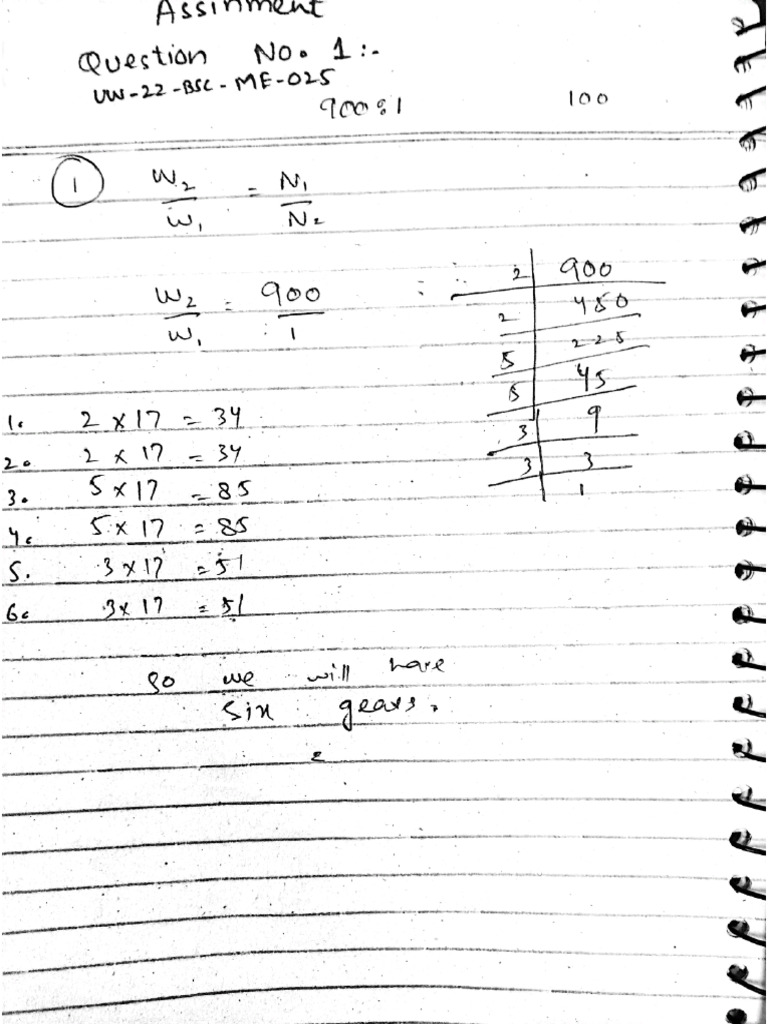 Assinment
Question No. 1:-
UW-22-BSC-ME-025
900:1 100
1 W2 = N1
W1 N2
W2 = 900
W1 1
2 | 900
2 | 450
5 | 225
5 | 45
3 | 9
3 | 3
1
1. 2 x 17 = 34
2. 2 x 17 = 34
3. 5 x 17 = 85
4. 5 x 17 = 85
5. 3 x 17 = 51
6. 3 x 17 = 51
so we will have
six gears.